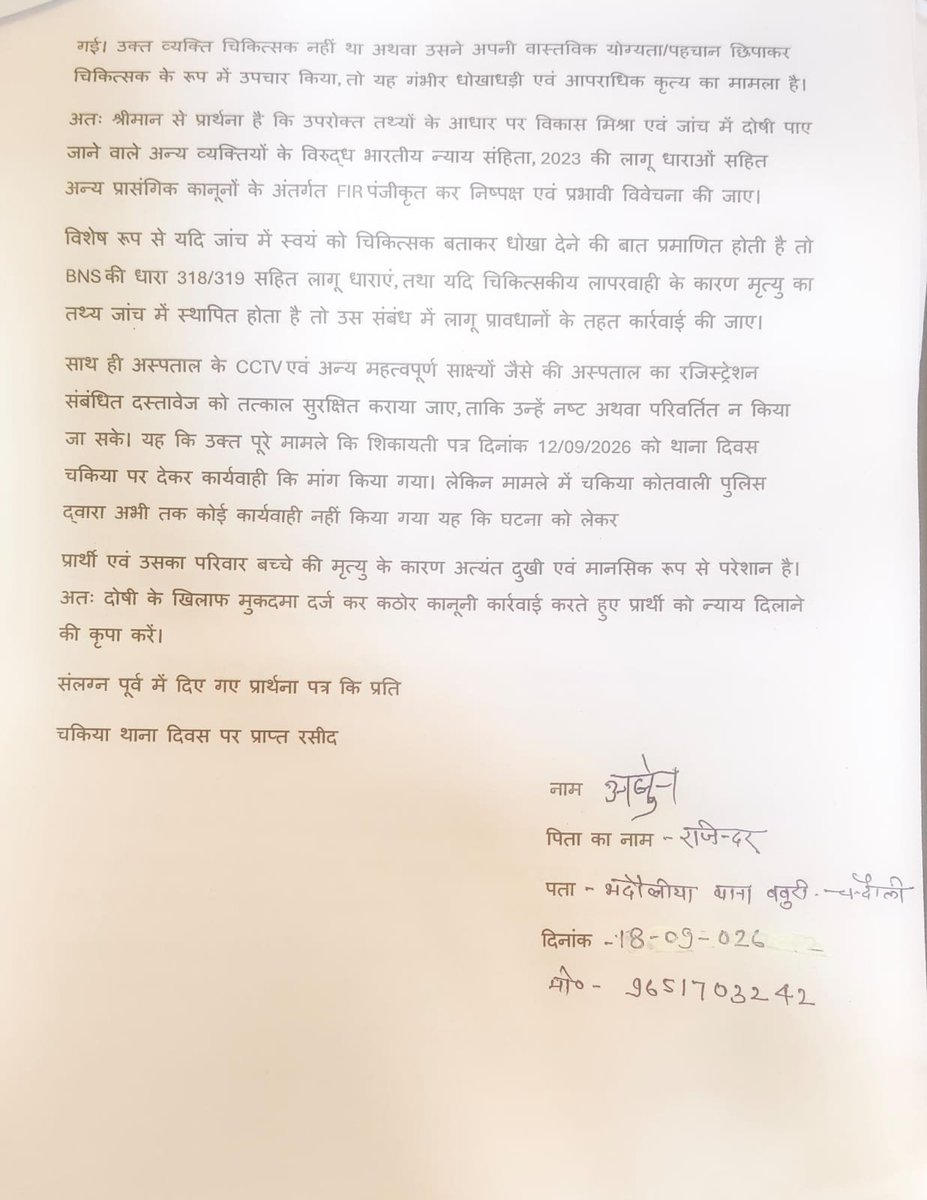 गई। उक्त व्यक्ति चिकित्सक नहीं था अथवा उसने अपनी वास्तविक योग्यता/पहचान छिपाकर
चिकित्सक के रूप में उपचार किया, तो यह गंभीर धोखाधड़ी एवं आपराधिक कृत्य का मामला है।
अतः श्रीमान से प्रार्थना है कि उपरोक्त तथ्यों के आधार पर विकास मिश्रा एवं जांच में दोषी पाए
जाने वाले अन्य व्यक्तियों के विरुद्ध भारतीय न्याय संहिता, 2023 की लागू धाराओं सहित
अन्य प्रासंगिक कानूनों के अंतर्गत FIR पंजीकृत कर निष्पक्ष एवं प्रभावी विवेचना की जाए।
विशेष रूप से यदि जांच में स्वयं को चिकित्सक बताकर धोखा देने की बात प्रमाणित होती है तो
BNS की धारा 318/319 सहित लागू धाराएं, तथा यदि चिकित्सकीय लापरवाही के कारण मृत्यु का
तथ्य जांच में स्थापित होता है तो उस संबंध में लागू प्रावधानों के तहत कार्रवाई की जाए।
साथ ही अस्पताल के CCTV एवं अन्य महत्वपूर्ण साक्ष्यों जैसे की अस्पताल का रजिस्ट्रेशन
संबंधित दस्तावेज को तत्काल सुरक्षित कराया जाए, ताकि उन्हें नष्ट अथवा परिवर्तित न किया
जा सके। यह कि उक्त पूरे मामले कि शिकायती पत्र दिनांक 12/09/2026 को थाना दिवस
चकिया पर देकर कार्यवाही कि मांग किया गया। लेकिन मामले में चकिया कोतवाली पुलिस
द्वारा अभी तक कोई कार्यवाही नहीं किया गया यह कि घटना को लेकर
प्रार्थी एवं उसका परिवार बच्चे की मृत्यु के कारण अत्यंत दुखी एवं मानसिक रूप से परेशान है।
अतः दोषी के खिलाफ मुकदमा दर्ज कर कठोर कानूनी कार्रवाई करते हुए प्रार्थी को न्याय दिलाने
की कृपा करें।
संलग्न पूर्व में दिए गए प्रार्थना पत्र कि प्रति
चकिया थाना दिवस पर प्राप्त रसीद
नाम अर्जुन
पिता का नाम - राजिन्दर
पता - भदौलीया थाना बबुरी - चन्दौली
दिनांक - 18-09-026
मो० - 9651703242